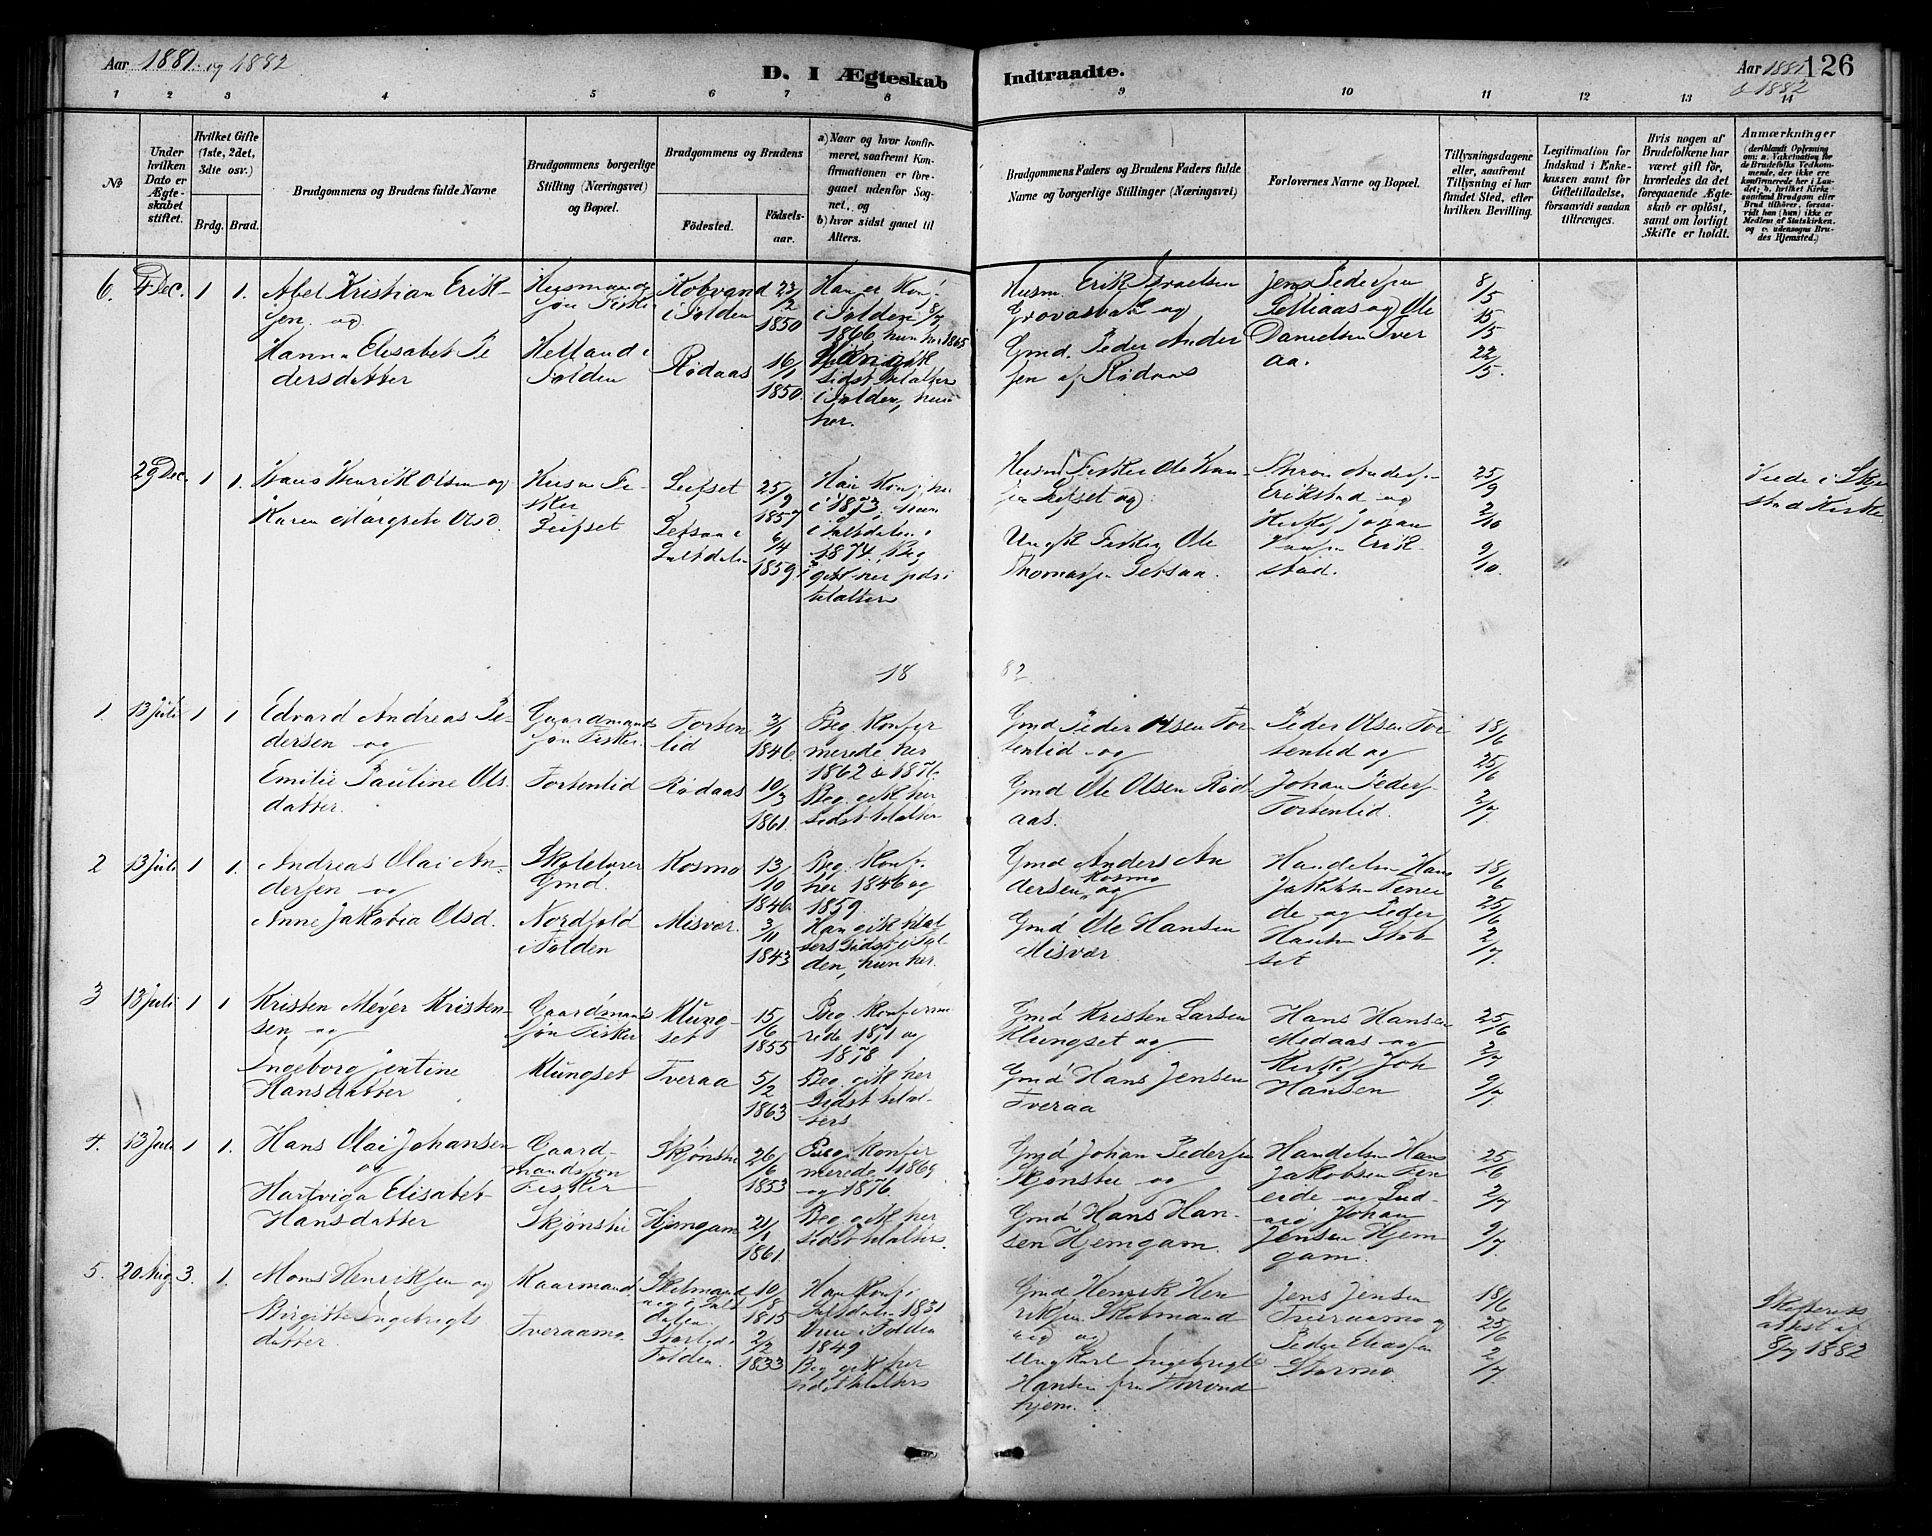 Aar 1881. og 1882
D. I Ægteskab Indtraadte.
Aar 1881 & 1882
126
1 2 3 4 5 6 7 8 9 10 11 12 13 14
No
Under hvilken Dato er Ægteskabet stiftet.
Hvilket Gifte (1ste, 2det, 3dte osv.)
Brdg. Brud.
Brudgommens og Brudens fulde Navne
Brudgommens borgerlige Stilling (Næringsvei) og Bopæl.
Brudgommens og Brudens
Födested.
Födselsaar.
a) Naar og hvor konfirmeret, saafremt Konfirmationen er foregaaet udenfor Sognet, og
b) hvor sidst gaaet til Alters.
Brudgommens Faders og Brudens Faders fulde Navne og borgerlige Stillinger (Næringsvei)
Forlovernes Navne og Bopæl.
Tillysningsdagene eller, saafremt Tillysning ei har fundet Sted, efter hvilken Bevilling.
Legitimation for Indskud i Enkekassen samt for Giftetilladelse, forsaavidt saadan tiltrænges.
Hvis nogen af Brudefolkene har været gift för, hvorledes da det foregaaende Ægteskab er oplöst, samt om lovligt Skifte er holdt.
Anmærkninger
(deriblandt Oplysning om: a. Vaksination for de Brudefolks Vedkommende, der ikke ere konfirmerede her i Landet; b. hvilket Kirkesamfund Brudgom eller Brud tilhörer, forsaavidt han (hun) ikke er Medlem af Statskirken, og c. udensogns Brudes Hjemsted.)
6. 4 Dec. 1 1.
Abel Kristian Erik-
sen og
Hanna Elisabet Pe
dersdatter
Husmands
søn Fisker
Helland i
Folden
Kobvand
i Folden
Rødaas
23/2
1850
16/1
1850.
Han er Konf.
i Folden 8/7
1866, hun her 1865
Han gik
sidst til alters
i Folden, hun
her.
Husm. Erik Israelsen
Grovasbak og
Gmd. Peder Ander
sen af Rødaas
Jens Pedersen
og Ole
Danielsen Tver
aa.
8/5
15/5
22/5.
29 Dec. 1 1.
Hans Henrik Olsen og
Karen Margrete Olsd.
Husm Fi-
sker
Leifset
Leifset
Setsaa i
Saltdalen
25/9
1857
6/4
1859
Han Konf. her
i 1873, hun
i Saltdalen i
1874. Beg
gik her sidst
til alters
Husm Fisker Ole Han-
sen Leifset og
Ungk Fisker Ole
Thomassen Setsaa.
Erikstad og
Kirkes Johan
Hansen Erik-
stad.
25/9
2/10
9/10.
Viede i Skjer
stad Kirke
18 82
1. 13 Juli 1 1
Edvard Andreas Pe-
dersen og
Emilie Pauline Ols
datter.
Gaardmands
søn Fisker
Torsenlid
Torsen
lid
Rødaas
3/1
1846.
10/3
1861.
Beg. Konfir
merede her
1862 & 1876.
Beg. gik her
sidst til alters
Gmd Peder Olsen Tor-
senlid og
Gmd Ole Olsen Rød
aas.
Peder Olsen Tor
senlid og
Johan Peders.
Torsenlid.
18/6
25/6
2/7
2 13 Juli 1 1.
Andreas Olai An-
dersen og
Anne Jakobia Olsd.
Skolelærer
Gmd.
Nordfold
i Folden
Kosmo
Misvær.
13/10
1846.
3/11
1843
Beg. Konf.
her 1846 og
1859.
Han gik til al
ters sidst i Fol
den, hun her.
Gmd Anders An
dersen Kosmo og
Gmd Ole Hansen
Misvær.
Handelsm Hans
Jakobsen Fenei
de og Peder
Hansen Støb
set
18/6
25/6
2/7.
3 13 Juli 1 1
Kristen Meyer Kristen-
sen og
Ingeborg Jentine
Hansdatter
Gaardmands
søn Fisker
Klungset
Klung-
set
Tveraa
15/6
1855
5/2
1863
Beg. Konfirme
rede 1871 og
1878
Beg. gik her
sidst til al-
ters
Gmd Kristen Larsen
Klungset og
Gmd Hans Jensen
Tveraa
Hans Hansen
Medaas og
Kirkes Joh
Hansen
25/6
2/7
9/7.
4. 13 Juli 1 1.
Hans Olai Johansen
og
Hartviga Elisabet
Hansdatter
Gaard-
mandssøn
Fisker
Skjønstu
Skjønstu
Hjemgam
26/6
1853
21/1
1861
Beg. Konfir
merede 1869
og 1876
Beg. gik her
sidst til alters.
Gmd Johan Pedersen
Skjønstu og
Gmd Hans Han-
sen Hjemgam.
Handelsm Hans
Jakobsen Fen
eide og Lud-
vig Johan
Jensen Hjem
gam.
25/6
2/7
9/7
5. 20 Aug 3. 1.
Mons Henriksen og
Birgitte Ingebrigts
datter
Kaarmand
Tveraamo.
Saltdalen.
Folden.
10/8
1815
2/2
1833
Han Konf i
Saltdalen 1831
Hun i Folden
1849
Beg gik her
sidst til alters
Gmd Henrik Hen
riksen
og
Ungkarl Ingebrigt
Hansen fra Throndhjem.
Jens Jensen
Tveraamo og
Peder Eliassen
Stormo
18/6
25/6
2/7.
Skifterets
attest af
8/7 1882